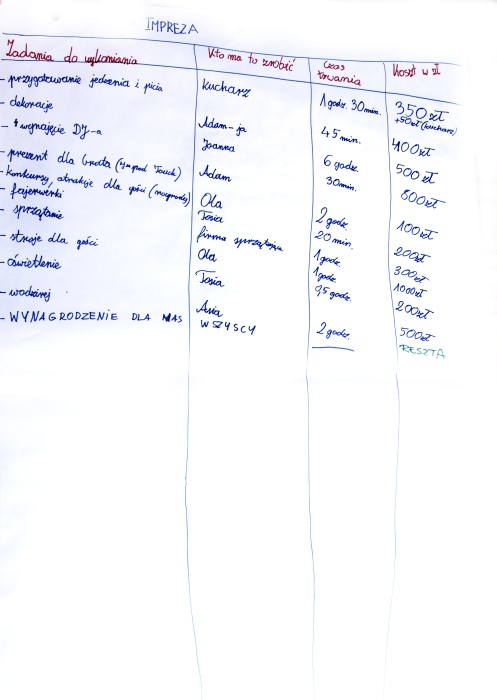 IMPREZA
Zadania do wykonania Kto ma to zrobić czas trwania Koszt w zł
- przygotowanie jedzenia i picia kucharz 1 godz. 30 min. 350zł
+50zł (kucharz)
- dekoracje Adam-ja 45 min. 400zł
- wynajęcie DJ-a Joanna 6 godz. 500zł
- prezent dla brata (Ipod Touch) Adam 30 min. 800zł
- konkursy, atrakcje dla gości (nagrody) Ola 2 godz. 100zł
- fajerwerki Tosia 20 min. 200zł
- sprzątanie firma sprzątająca 1 godz. 300zł
- stroje dla gości Ola 1 godz. 1000zł
- oświetlenie Tosia 0,5 godz. 200zł
- wodzirej Asia 2 godz. 500zł
- WYNAGRODZENIE DLA NAS WSZYSCY RESZTA